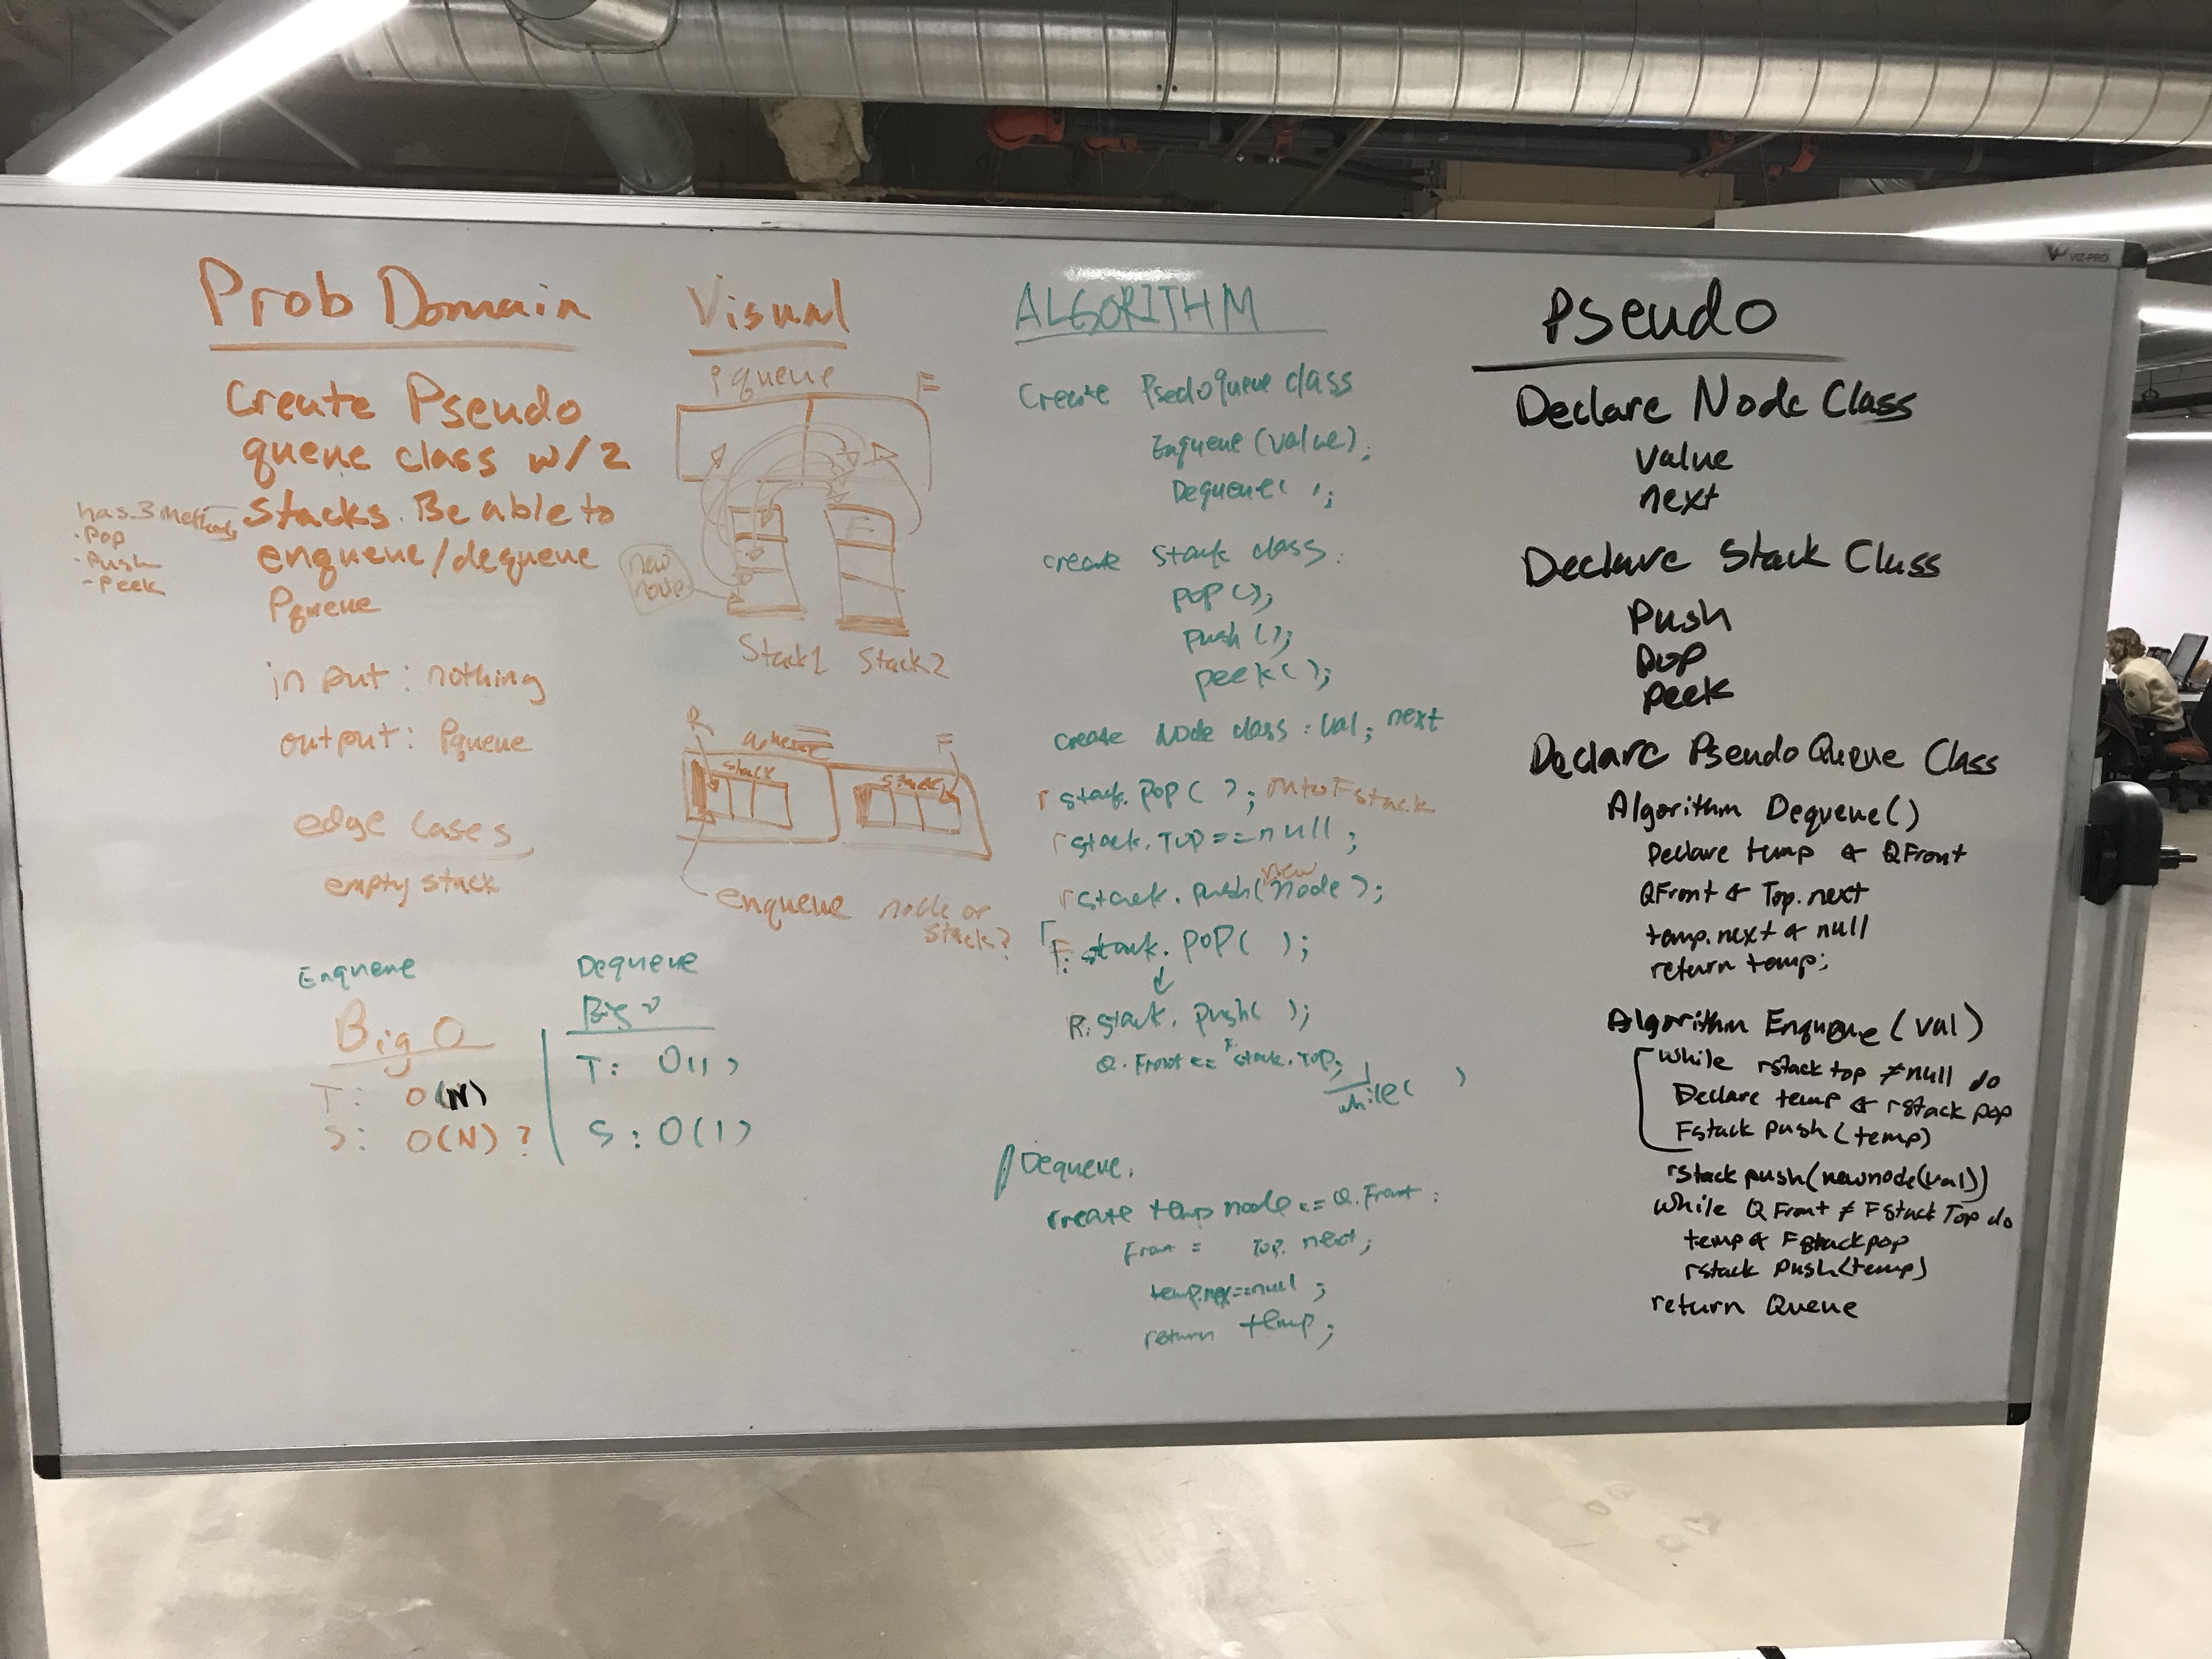 VIZ-PRO
Prob Domain
Create Pseudo
queue class w/2
stacks. Be able to
enqueue/dequeue
Pqueue
has 3 methods
- Pop
- Push
- Peek
input: nothing
output: Pqueue
edge cases
empty stack
Enqueue
Big O
T: O(N)
S: O(N) ?
Dequeue
Big O
T: O(1)
S: O(1)
Visual
Pqueue
F
new
node
Stack1
Stack2
R
F
stack
stack
enqueue node or
stack?
ALGORITHM
Create Psedoqueue class
Enqueue (value);
Dequeue( );
create stack class:
pop();
push();
peek();
create Node class: val; next
r stack.pop( ); onto Fstack
rstack.Top == null;
new
rstack.push(node);
F. stack.pop( );
R. stack.push( );
Q.Front <= F.stack.Top;
while( )
Dequeue:
create temp node <= Q.Front;
Front = Top.next;
temp.nex==null;
return temp;
Pseudo
Declare Node Class
Value
next
Declare Stack Class
Push
Pop
Peek
Declare PseudoQueue Class
Algorithm Dequeue()
Declare temp ← QFront
QFront ← Top.next
temp.next ← null
return temp;
Algorithm Enqueue(val)
while rstack top ≠ null do
Declare temp ← rstack pop
Fstack push(temp)
rstack push(newnode(val))
while QFront ≠ Fstack Top do
temp ← Fstack pop
rstack push(temp)
return Queue